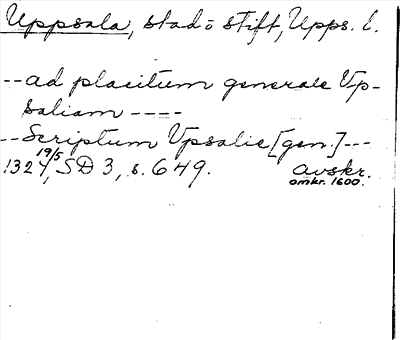 Uppsala, stad o stift, Upps. l.
--ad placitum generale Vp-
saliam ----
--Scriptum Vpsalie [gen.]---
19/5
1324, SD 3, s. 649. avskr.
omkr. 1600.